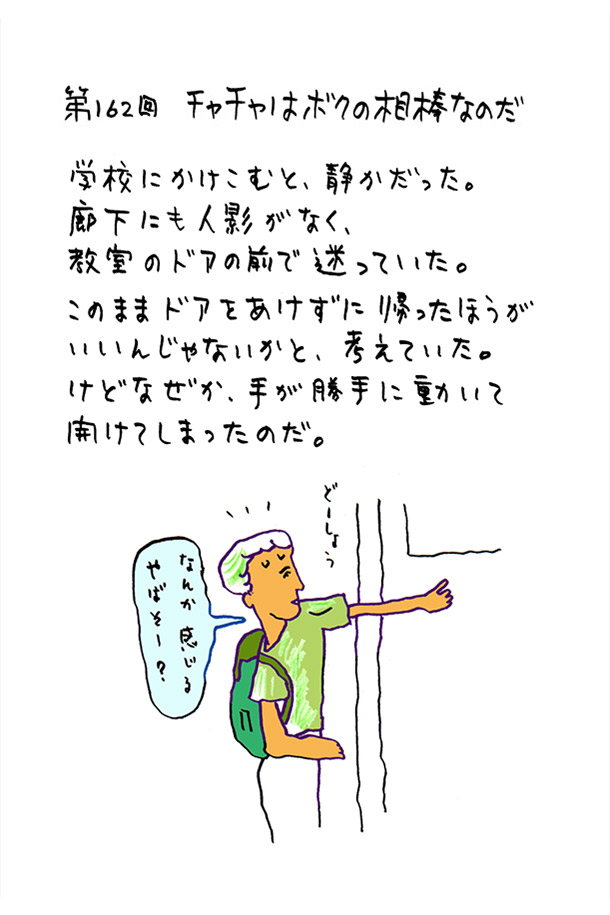 第162回 チャチャはボクの相棒なのだ
学校にかけこむと、静かだった。
廊下にも人影がなく、
教室のドアの前で迷っていた。
このままドアをあけずに帰ったほうが
いいんじゃないかと、考えていた。
けどなぜか、手が勝手に動いて
開けてしまったのだ。
どーしょう
なんか感じる
やばそー？